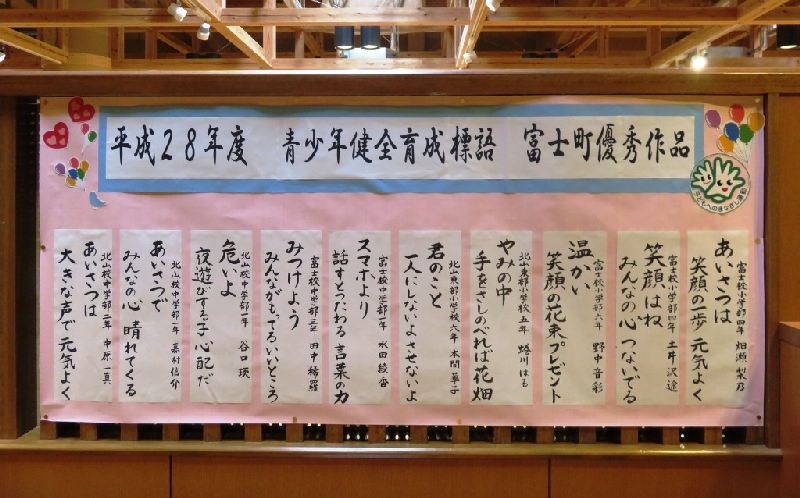 平成28年度　青少年健全育成標語　富士町優秀作品
子どもへのまなざし運動
あいさつは
笑顔の一歩 元気よく
富士校小学部四年 畑瀬
笑顔はね
みんなの心 つないでる
富士校小学部四年 土井
温かい
笑顔の花束プレゼント
富士校小学部六年 野中 音彩
やみの中
手をさしのべれば花畑
北山東部小学校五年 はる
君のこと
一人にしないよさせないよ
北山東部小学校六年 本間
スマホより
話すとつたわる 言葉の力
富士校中学部一年 水田 綾香
みつけよう
みんながもってるいいところ
富士校中学部三年 田中 綺羅
危いよ
夜遊びする子 心配だ
北山校中学部一年 谷口 瑛
あいさつで
みんなの心 晴れてくる
北山校中学部一年 嘉村 信介
あいさつは
大きな声で 元気よく
北山校中学部二年 中原 一真